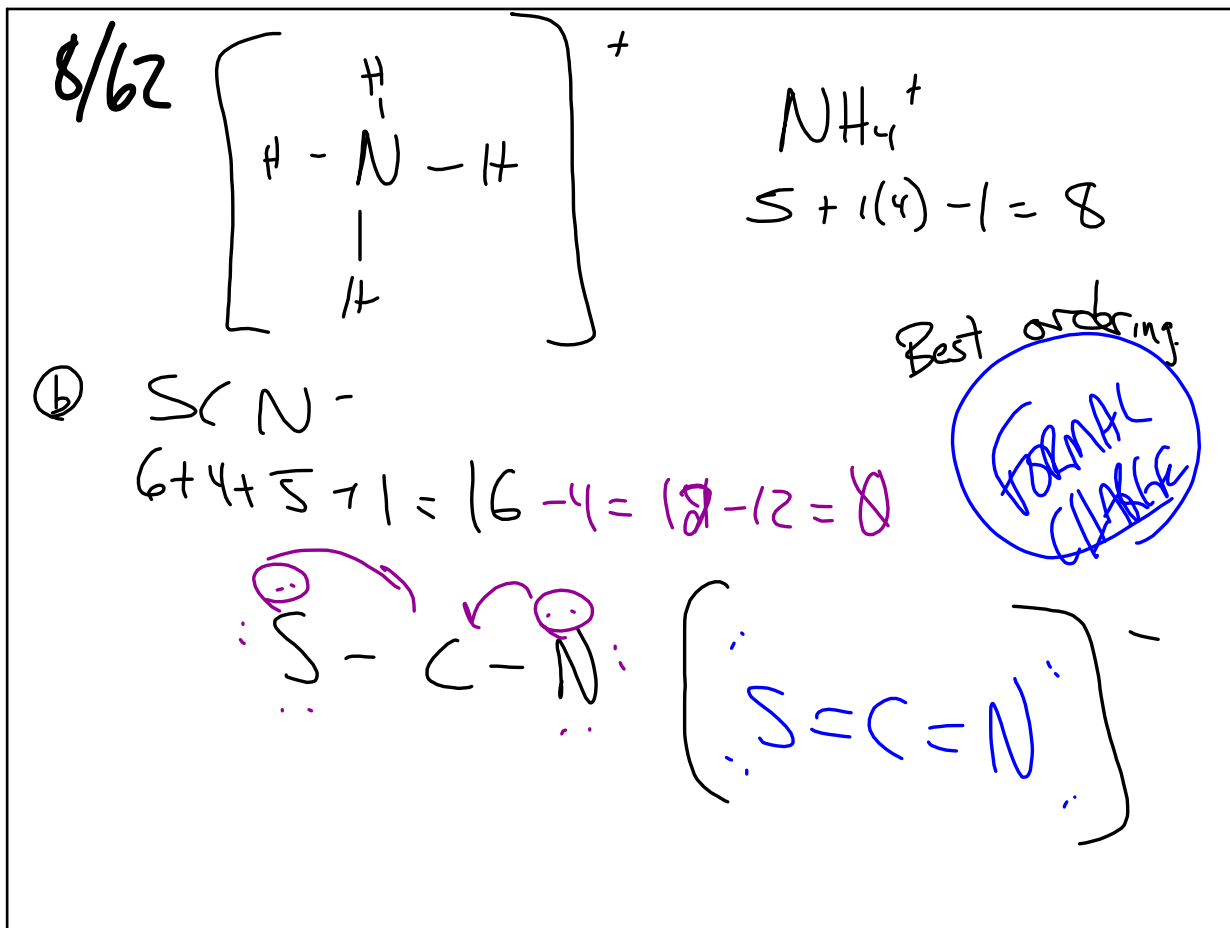 8/62
[ H
H - N - H
|
H ] +
NH₄⁺
5 + 1(4) - 1 = 8
Best ordering
FORMAL
CHARGE
ⓑ SCN⁻
6+4+5+1 = 16 -4 = 12 -12 = 0
S - C - N
[ S=C=N ] -